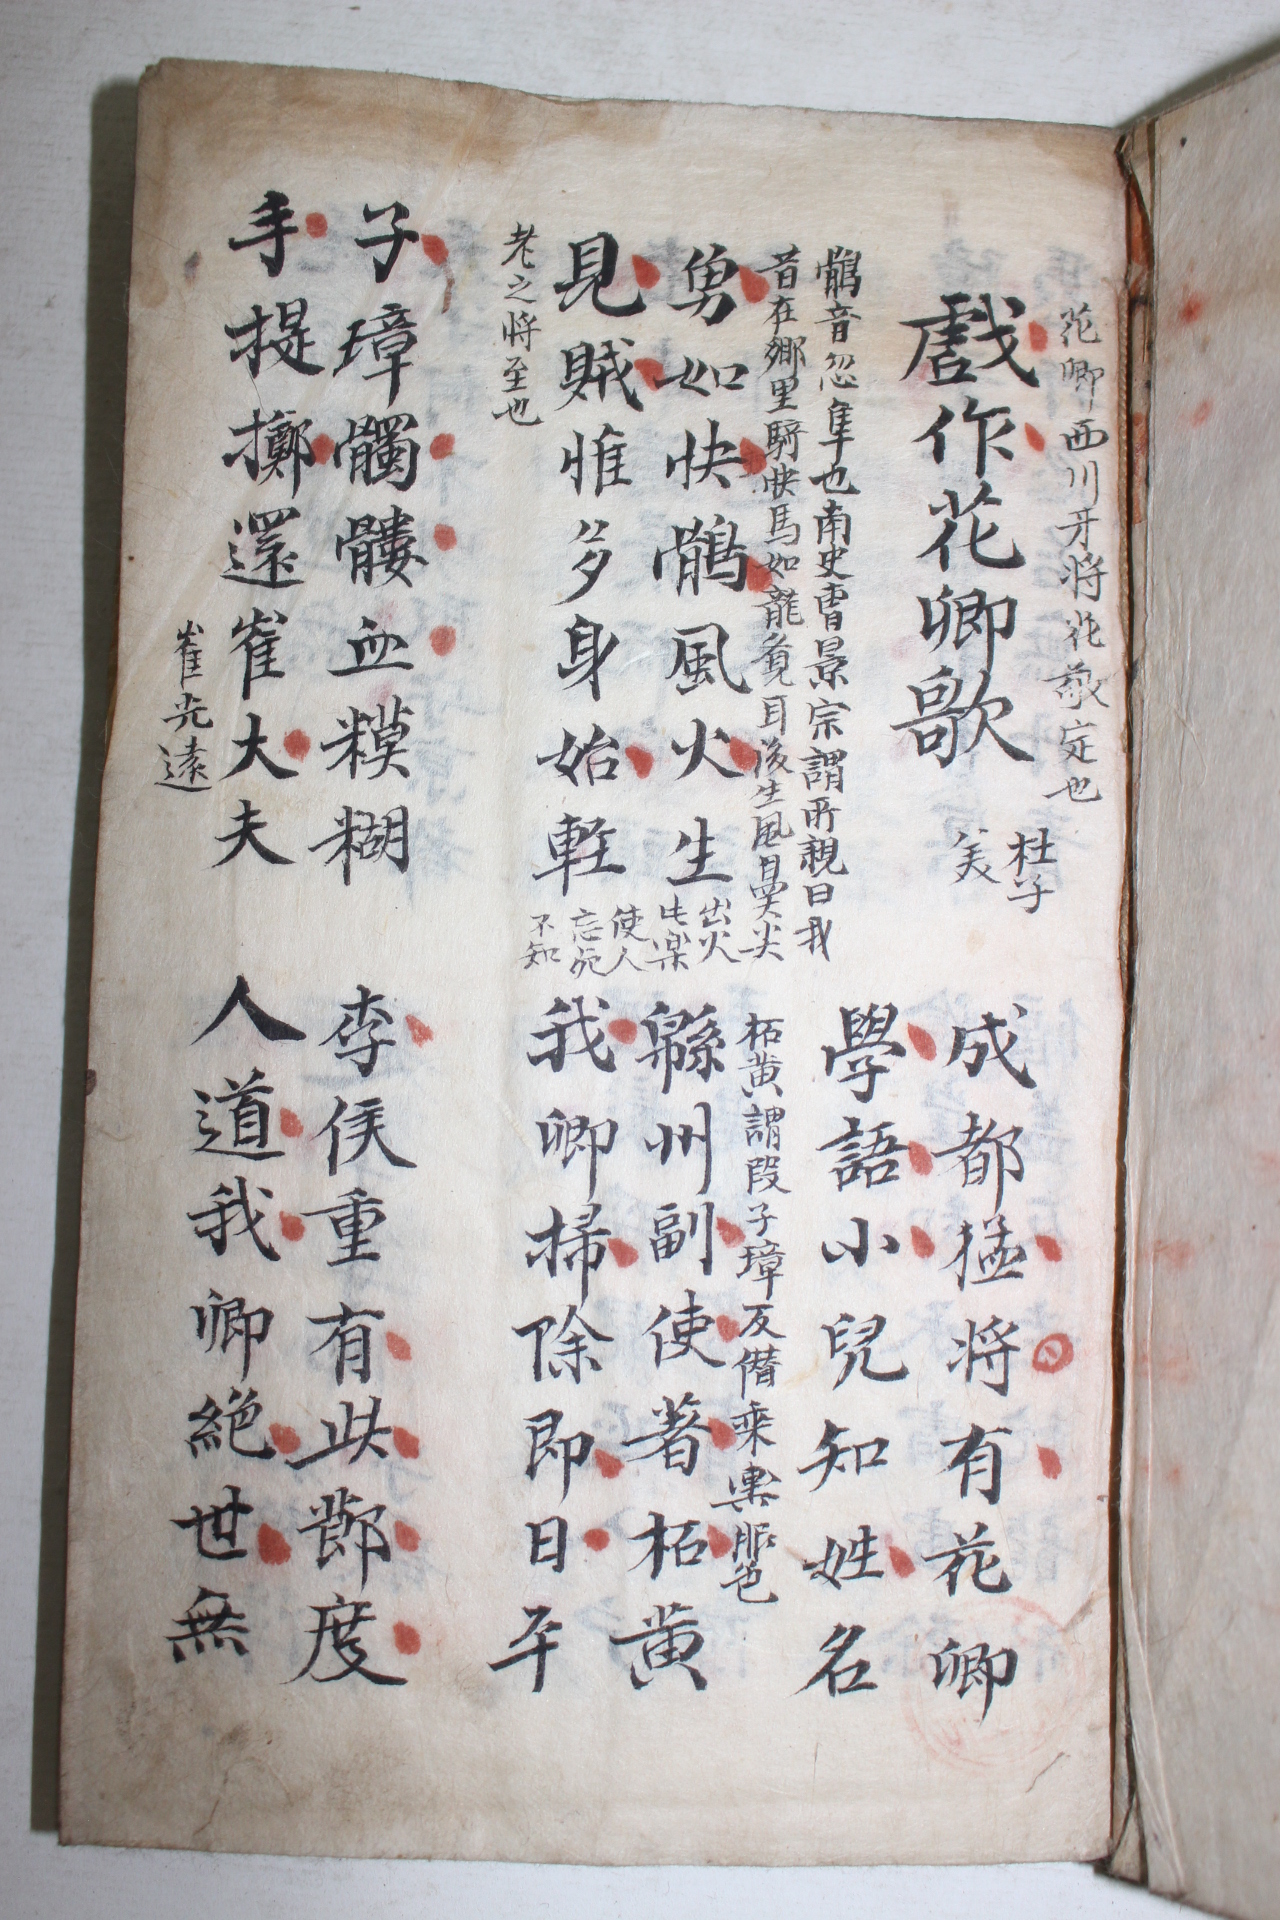 花卿西川牙將花敬定也
戱作花卿歌
杜子
美
成都猛將有花卿
學語小兒知姓名
鶻音忽隼也南史曹景宗謂所親曰我
昔在鄕里騎快馬如龍覔耳後生風鼻尖
出火
此樂
使人
忘死
不知
老之將至也
勇如快鶻風火生
柘黃謂段子璋反僭乘輿服色
緜州副使著柘黃
見賊惟多身始軽
我卿掃除即日平
子璋髑髏血糢糊
李侯重有此節度
手提擲還崔大夫
崔光遠
人道我卿絕世無